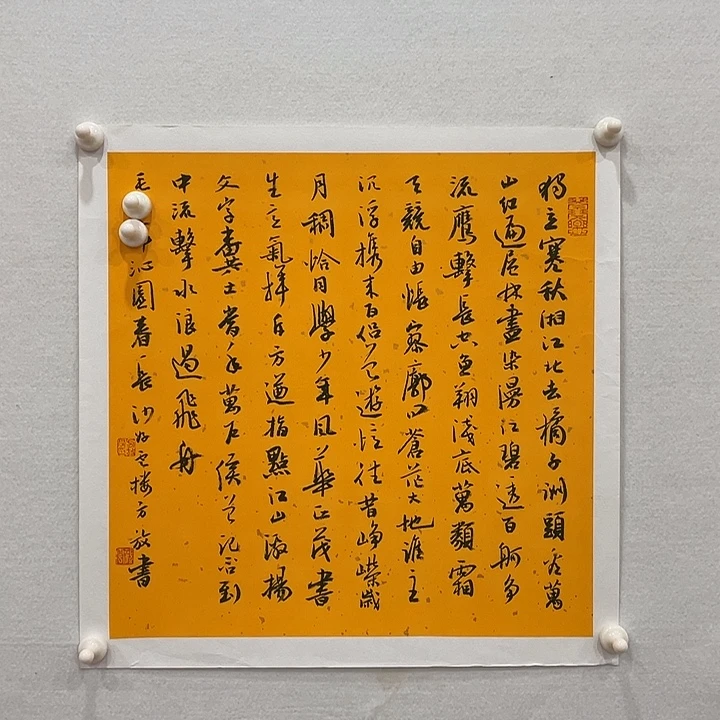 獨立寒秋湘江北去橘子洲頭看萬
山红遍层林盡染漫江碧透百舸争
流鷹擊長空魚翔淺底萬類霜
天競自由悵寥廓问蒼茫大地谁主
沉浮携来百侣曾遊憶往昔峥嵘歲
月稠恰同學少年風華正茂書
生意氣揮斥方遒指點江山激揚
文字糞土當年萬户侯曾记否到
中流擊水浪遏飛舟
毛 沁園春長沙 楼方放書